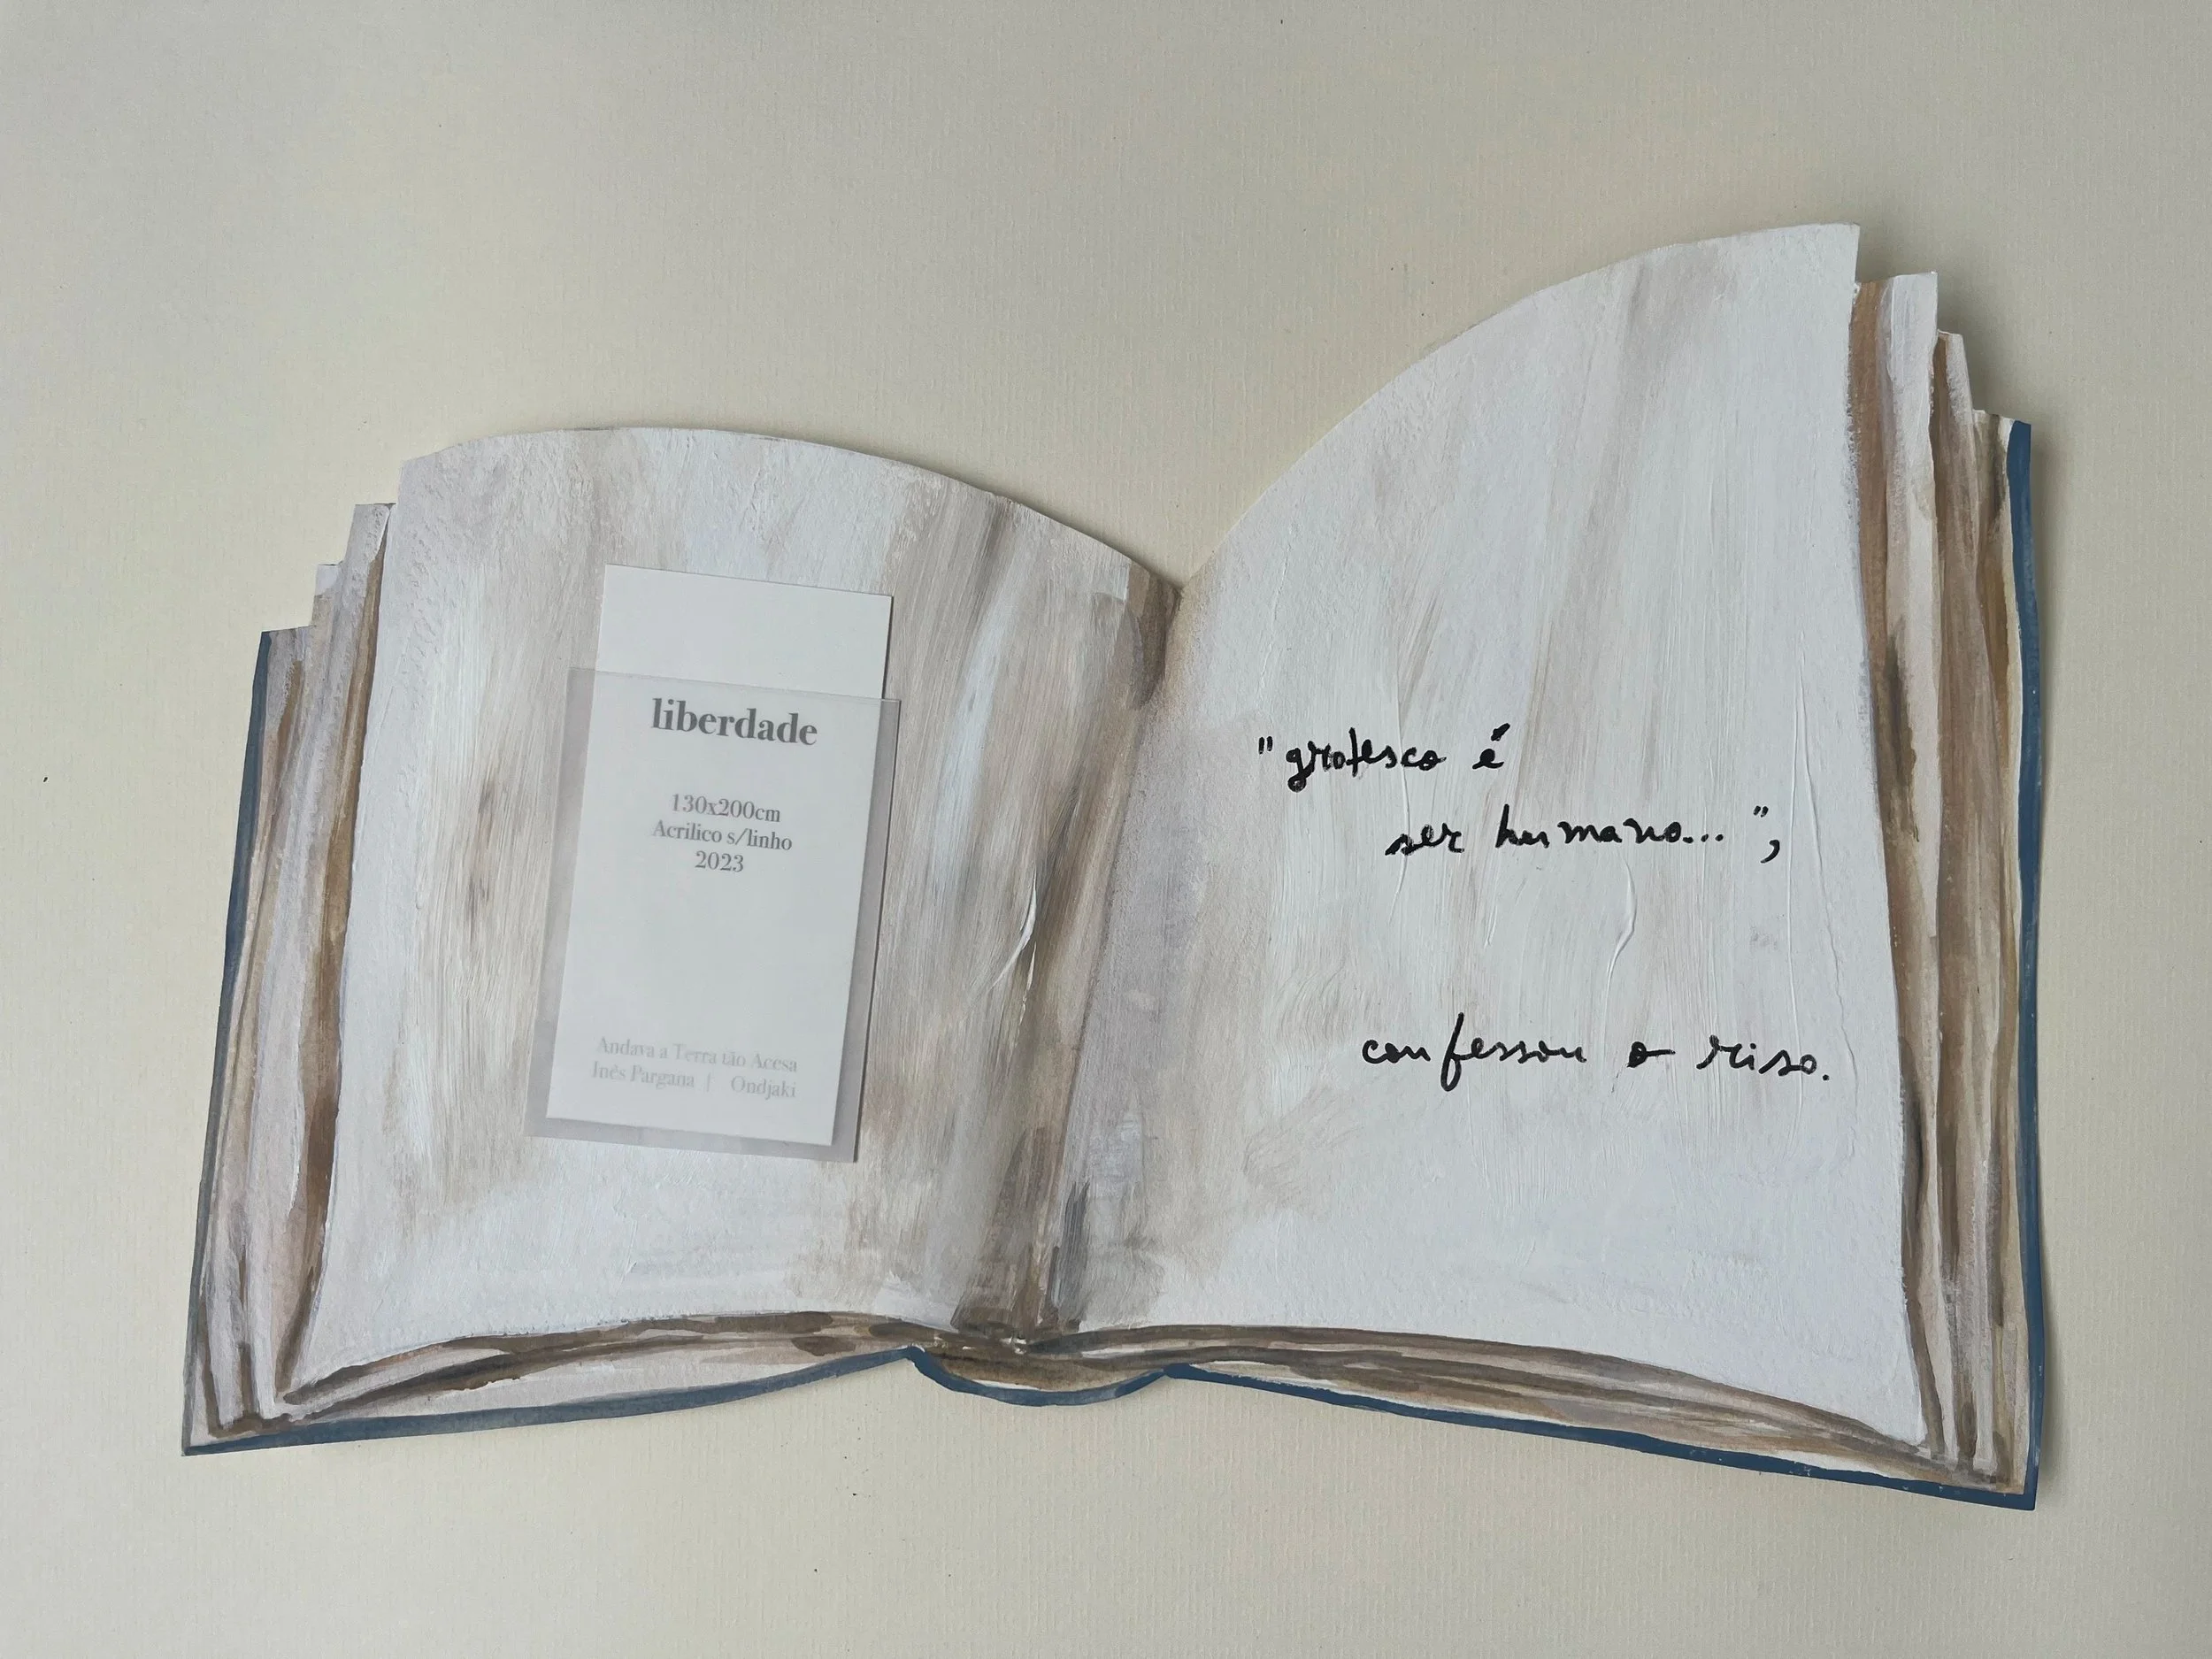 liberdade
130x200cm
Acrilico s/linho
2023
Andava a Terra tão Acesa
Inês Pargana | Ondjaki
"grotesco é
ser humano...",
confessou o riso.